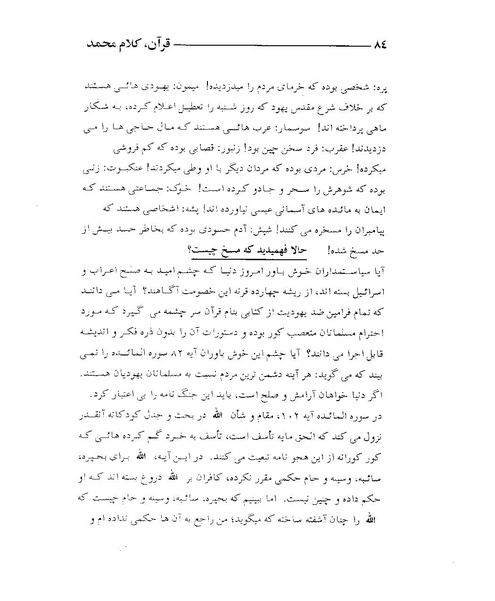 ٨٤ قرآن، کلام محمد
پره: شخصی بوده که خرمای مردم را میدزدیده! میمون: یهودی هائی هستند
که بر خلاف شرع مقدس یهود که روز شنبه را تعطیل اعلام کرده، به شکار
ماهی پرداخته اند! سوسمار: عرب هائی هستند که مال حاجی ها را می
دزدیدند! عقرب: فرد سخن چین بود! زنبور: قصابی بوده که کم فروشی
میکرده! خرس: مردی بوده که مردان دیگر با او وطی میکردند! عنکبوت: زنی
بوده که شوهرش را سحر و جادو کرده است! خوک: جماعتی هستند که
ایمان به مائده های آسمانی عیسی نیاورده اند! پشه: اشخاصی هستند که
پیامبران را مسخره می کنند! شپش: آدم حسودی بوده که بخاطر حسد بیش از
حد مسخ شده! حالا فهمیدید که مسخ چیست؟
آیا سیاستمداران خوش باور امروز دنیا که چشم امید به صلح اعراب و
اسرائیل بسته اند، از ریشه چهارده قرنه این خصومت آگاهند؟ آیا می دانند
که تمام فرامین ضد یهودیت از کتابی بنام قرآن سر چشمه می گیرد که مورد
احترام مسلمانان متعصب کور بوده و دستورات آن را بدون ذره فکر و اندیشه
قابل اجرا می دانند؟ آیا چشم این خوش باوران آیه ٨٢ سوره المائده را نمی
بیند که می گوید: هر آینه دشمن ترین مردم نسبت به مسلمانان یهودیان هستند.
اگر دنیا خواهان آرامش و صلح است، باید این جنگ نامه را بی اعتبار کرد.
در سوره المائده آیه ١٠٢، مقام و شأن الله در بحث و جدل کودکانه آنقدر
نزول می کند که الحق مایه تأسف است، تأسف به خرد گم کرده هائی که
کور کورانه از این هجو نامه تبعیت می کنند. در این آیه، الله برای بحیره،
سائبه، وسینه و حام حکمی مقرر نکرده، کافران بر الله دروغ بسته اند که او
حکم داده و چنین نیست. اما ببینیم که بحیره، سائبه، وسینه و حام چیست که
الله را چنان آشفته ساخته که میگوید؛ من راجع به آن ها حکمی نداده ام و